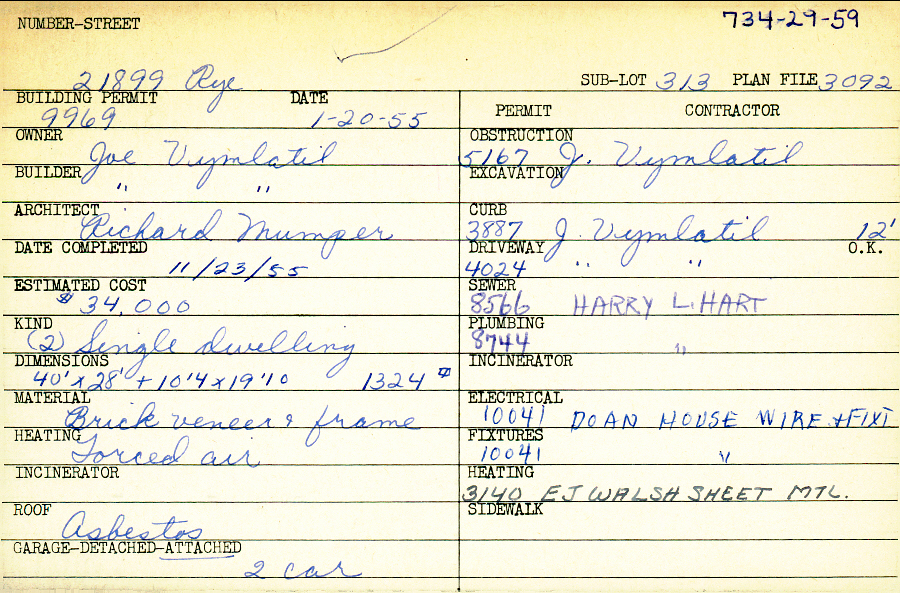 734-29-59
NUMBER-STREET
21899 Rye
SUB-LOT 313 PLAN FILE 3092
BUILDING PERMIT DATE
9969 1-20-55
OWNER
Joe Vymlatil
BUILDER
" "
ARCHITECT
Richard Mumper
DATE COMPLETED
11/23/55
ESTIMATED COST
$ 34,000
KIND
(2) Single dwelling
DIMENSIONS
40' x 28' + 10'4 x 19'10 1324
MATERIAL
Brick veneer & frame
HEATING
Forced air
INCINERATOR
ROOF
Asbestos
GARAGE-DETACHED-ATTACHED
2 car
PERMIT CONTRACTOR
OBSTRUCTION
5167 J. Vymlatil
EXCAVATION
CURB
3887 J. Vymlatil 12'
DRIVEWAY O.K.
4024 " "
SEWER
8566 HARRY L. HART
PLUMBING
8744 "
INCINERATOR
ELECTRICAL
10041 DOAN HOUSE WIRE & FIXT
FIXTURES
10041 "
HEATING
3140 EJ WALSH SHEET MTL.
SIDEWALK